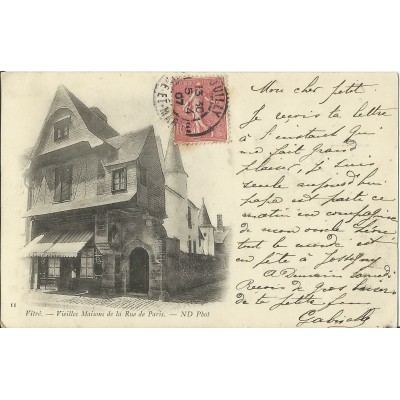 Mon cher petit.
Je reçois ta lettre
à l'instant qui
me fait grand
plaisir, je suis
seule aujourd'hui
papa est parti ce
matin en compagnie
de mon oncle
tout le monde est
en fête à
A Demain Samedi
Reçois de gros baisers
de ta petite
Gabrielle
13-10
5-4
07
11
Vitré. — Vieilles Maisons de la Rue de Paris. — ND Phot